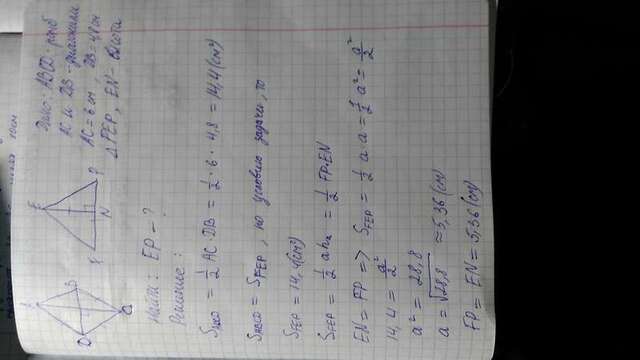 Дано: ABCD - ромб
AC и DB - диагонали
AC = 6 см, DB = 4,8 см
△ FEP, EN - высота
Найти: EP - ?
Решение:
S = 1/2 AC · DB = 1/2 · 6 · 4,8 = 14,4 (см²)
S ABCD = S FEP, по условию задачи, то
S FEP = 14,4 (см²)
S FEP = 1/2 a hₐ = 1/2 FP · EN
EN = FP => S FEP = 1/2 a · a = 1/2 a² = a²/2
14,4 = a²/2
a² = 28,8
a = √28,8 ≈ 5,36 (см)
FP = EN = 5,36 (см)